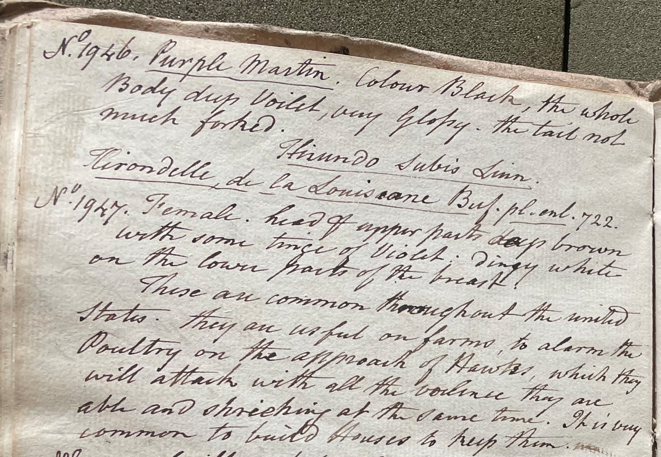 No. 1946. Purple Martin. Colour Black, the whole
Body deep Voilet, very Glossy. the tail not
much forked.
Hirundo subis Linn.
Hirondelle, de la Louisiane Buf. pl. enl. 722.
No. 1947. Female. head & upper parts deep brown
with some tinge of Violet. dingy white
on the lower parts of the breast.
These are common throughout the united
States. they are usful on farms, to alarm the
Poultry on the approach of Hawks, which they
will attack with all the voilence they are
able and shrieking at the same time. It is very
common to build Houses to keep them.